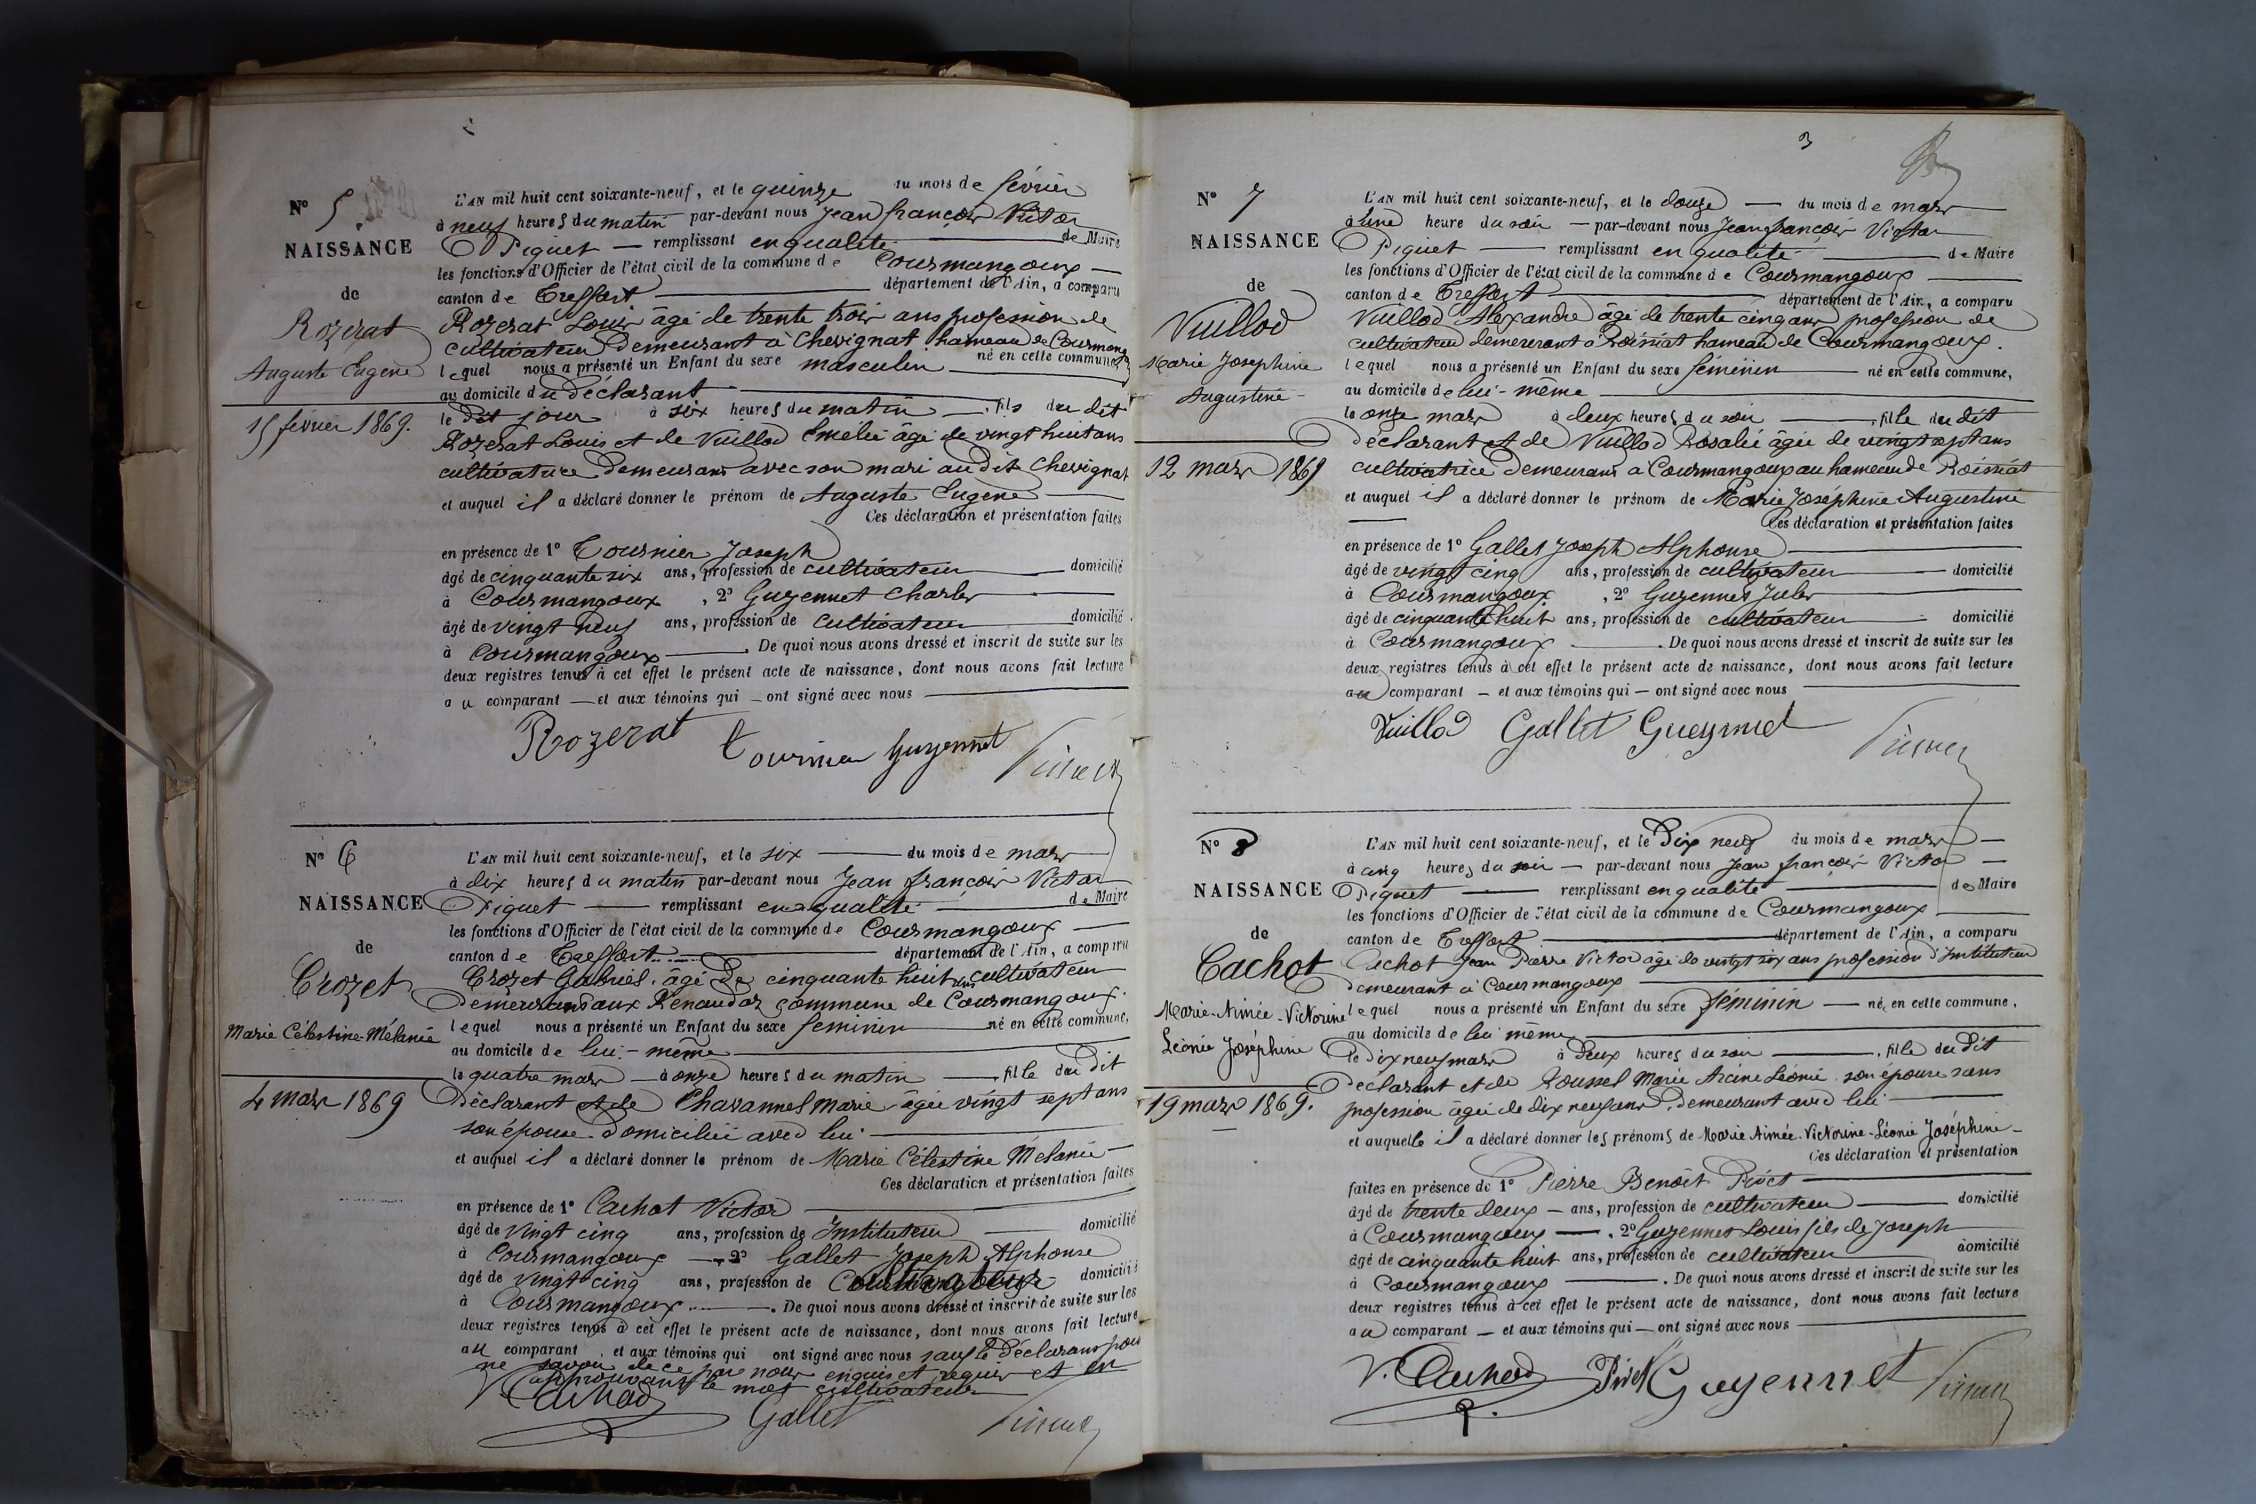 2
N° 5
NAISSANCE
de
Rozerat
Auguste Eugène
15 février 1869.
L'AN mil huit cent soixante-neuf, et le quinze du mois de février
à neuf heures du matin par-devant nous Jean françois Victor
Piquet — remplissant en qualité de Maire
les fonctions d'Officier de l'état civil de la commune de Courmangoux
canton de Treffort département de l'Ain, a comparu
Rozerat Louis âgé de trente trois ans profession de
cultivateur demeurant à Chevignat hameau de Courmangoux
lequel nous a présenté un Enfant du sexe masculin né en cette commune,
au domicile du déclarant
le dit jour à six heures du matin, fils du dit
Rozerat Louis et de Vuillod Emelie âgé de vingt huit ans
cultivatrice demeurant avec son mari au dit Chevignat
et auquel il a déclaré donner le prénom de Auguste Eugène
Ces déclaration et présentation faites
en présence de 1° Tournier Joseph
âgé de cinquante six ans, profession de cultivateur domicilié
à Courmangoux, 2° Guyennet Charles
âgé de vingt neuf ans, profession de cultivateur domicilié
à Courmangoux. De quoi nous avons dressé et inscrit de suite sur les
deux registres tenus à cet effet le présent acte de naissance, dont nous avons fait lecture
au comparant — et aux témoins qui — ont signé avec nous
Rozerat Tournier Guyennet Piquet
N° 6
NAISSANCE
de
Crozet
Marie Célestine Mélanie
4 mars 1869
L'AN mil huit cent soixante-neuf, et le six du mois de mars
à dix heures du matin par-devant nous Jean françois Victor
Piquet — remplissant en qualité de Maire
les fonctions d'Officier de l'état civil de la commune de Courmangoux
canton de Treffort département de l'Ain, a comparu
Crozet Gabriel âgé de cinquante huit ans cultivateur
demeurant aux Renaudaz commune de Courmangoux.
lequel nous a présenté un Enfant du sexe féminin né en cette commune,
au domicile de lui-même
le quatre mars à onze heures du matin, fille du dit
déclarant et de Chavannel Marie âgée vingt sept ans
son épouse domiciliée avec lui
et auquel il a déclaré donner le prénom de Marie Célestine Mélanie
Ces déclaration et présentation faites
en présence de 1° Cachot Victor
âgé de vingt cinq ans, profession de Instituteur domicilié
à Courmangoux — 2° Gallet Joseph Alphonse
âgé de vingt cinq ans, profession de cultivateur domicilié
à Courmangoux. De quoi nous avons dressé et inscrit de suite sur les
deux registres tenus à cet effet le présent acte de naissance, dont nous avons fait lecture
au comparant et aux témoins qui ont signé avec nous sauf le déclarant pour
ne savoir de ce par nous enquis et requis et en
approuvant le mot cultivateur
V. Cachot Gallet Piquet
3
N° 7
NAISSANCE
de
Vuillod
Marie Joséphine
Augustine
12 mars 1869
L'AN mil huit cent soixante-neuf, et le douze — du mois de mars
à une heure du soir — par-devant nous Jean françois Victor
Piquet — remplissant en qualité de Maire
les fonctions d'Officier de l'état civil de la commune de Courmangoux
canton de Treffort département de l'Ain, a comparu
Vuillod Alexandre âgé de trente cinq ans profession de
cultivateur demeurant à Roissiat hameau de Courmangoux.
lequel nous a présenté un Enfant du sexe féminin né en cette commune,
au domicile de lui-même
le onze mars à deux heures du soir, fille du dit
déclarant et de Vuillod Rosalie âgée de vingt sept ans
cultivatrice demeurant à Courmangoux au hameau de Roissiat
et auquel il a déclaré donner le prénom de Marie Joséphine Augustine
Ces déclaration et présentation faites
en présence de 1° Gallet Joseph Alphonse
âgé de vingt cinq ans, profession de cultivateur domicilié
à Courmangoux, 2° Guyennet Jules
âgé de cinquante huit ans, profession de cultivateur domicilié
à Courmangoux. De quoi nous avons dressé et inscrit de suite sur les
deux registres tenus à cet effet le présent acte de naissance, dont nous avons fait lecture
au comparant — et aux témoins qui — ont signé avec nous
Vuillod Gallet Gueynnet Piquet
N° 8
NAISSANCE
de
Cachot
Marie-Aimée-Victorine
Léonie Joséphine
19 mars 1869.
L'AN mil huit cent soixante-neuf, et le Dix neuf du mois de mars
à cinq heures du soir — par-devant nous Jean françois Victor
Piquet — remplissant en qualité de Maire
les fonctions d'Officier de l'état civil de la commune de Courmangoux
canton de Treffort département de l'Ain, a comparu
Cachot Jean Pierre Victor âgé de vingt six ans profession d'Instituteur
demeurant à Courmangoux
lequel nous a présenté un Enfant du sexe féminin — née en cette commune,
au domicile de lui même
le dix neuf mars à deux heures du soir, fille du dit
déclarant et de Roussel Marie Arcine Léonie son épouse sans
profession âgée de dix neuf ans, demeurant avec lui
et auquelle il a déclaré donner les prénoms de Marie Aimée-Victorine-Léonie Joséphine
Ces déclaration et présentation
faites en présence de 1° Pierre Benoît Pivet
âgé de trente deux — ans, profession de cultivateur domicilié
à Courmangoux — . 2° Guyennet Louis fils de Joseph
âgé de cinquante huit ans, profession de cultivateur domicilié
à Courmangoux. De quoi nous avons dressé et inscrit de suite sur les
deux registres tenus à cet effet le présent acte de naissance, dont nous avons fait lecture
au comparant — et aux témoins qui — ont signé avec nous
V. Cachot Pivet Guyennet Piquet